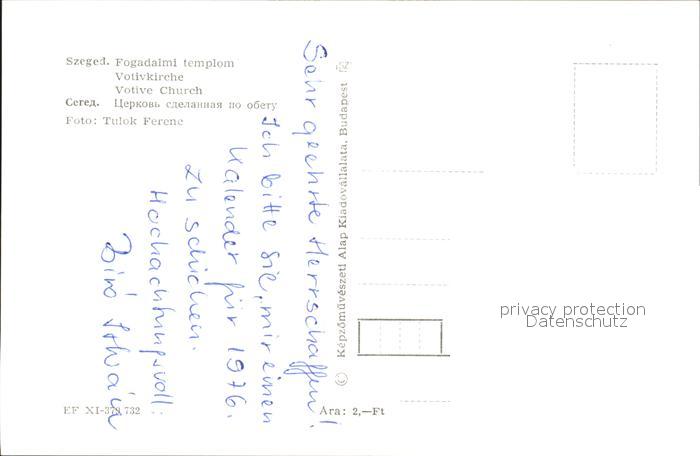 Szeged. Fogadalmi templom
Votivkirche
Votive Church
Сегед. Церковь сделанная по обету
Foto: Tulok Ferenc
Sehr geehrte Herrschaffen!
Ich bitte sie, mir einen
Kalender für 1976.
zu schicken.
Hochachtungsvoll:
Biró István
© Képzőművészeti Alap Kiadóvállalata, Budapest
privacy protection
Datenschutz
EF XI-379 732
Ára: 2,—Ft